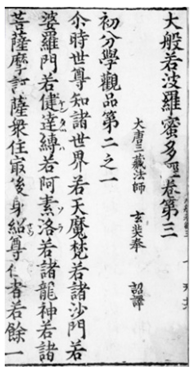 大般若波羅蜜多經卷第三
大唐三藏法師 玄奘奉 詔譯
初分學觀品第二之一
尒時世尊知諸世界若天魔梵若諸沙門若
婆羅門若健達縛若阿素洛若諸龍神若諸
菩薩摩訶薩衆住㝡後身紹尊位者若餘一